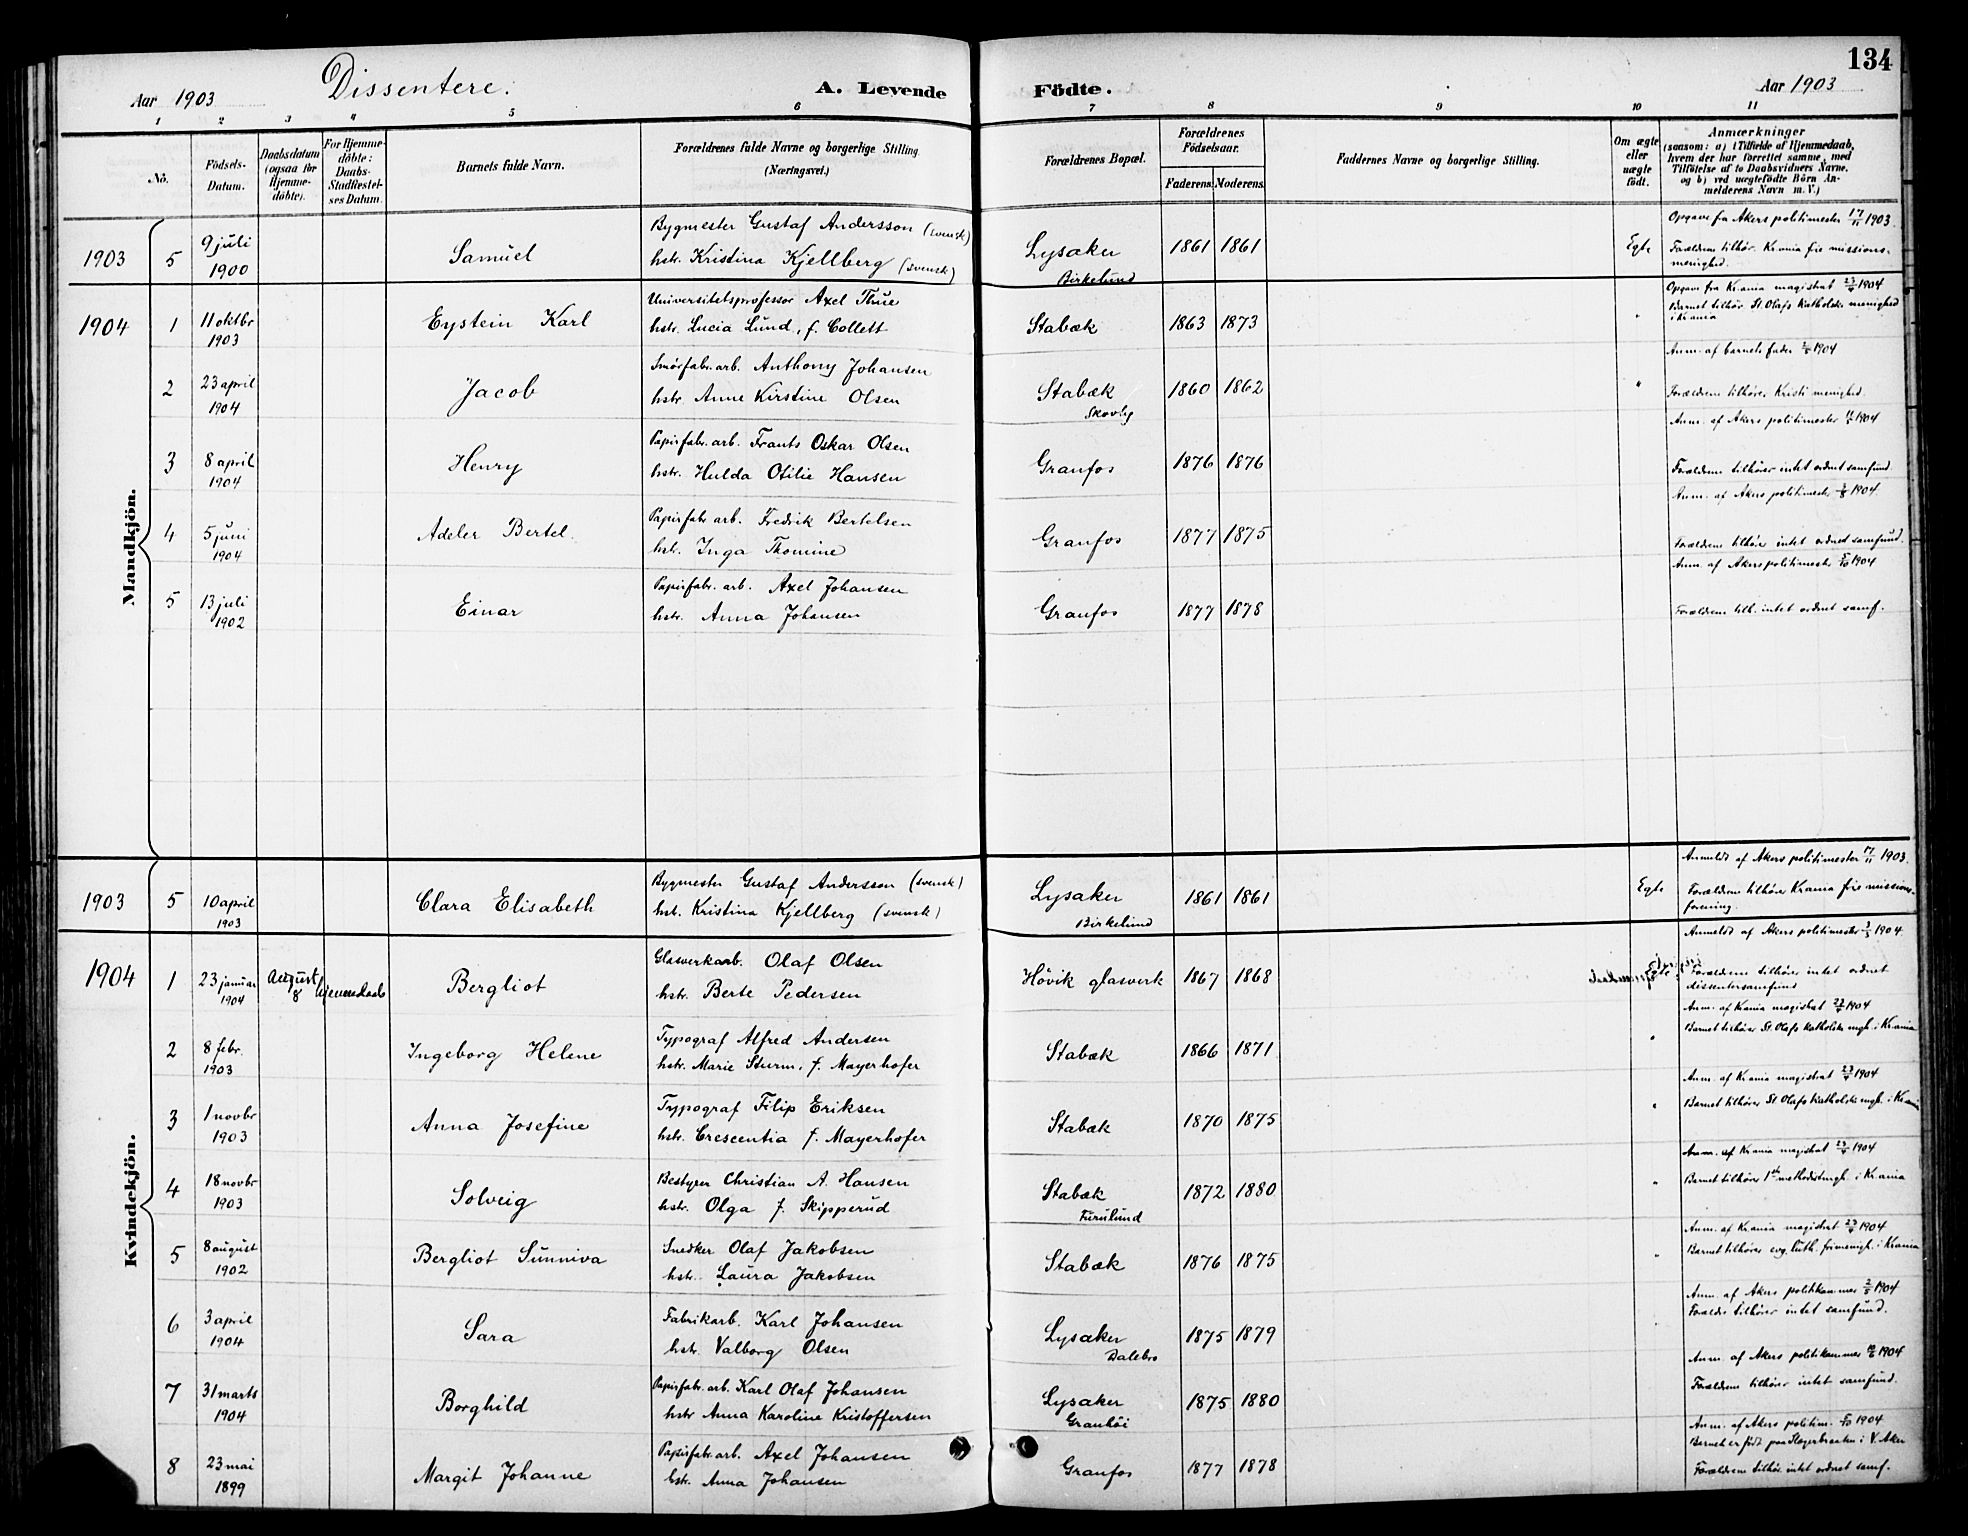 134
Aar 1903 Dissentere. A. Levende Födte. Aar 1903
1 2 3 4 5 6 7 8 9 10 11
No.
Födsels-
Datum.
Daabsdatum
(ogsaa for
Hjemme-
döbte).
For Hjemme-
döbte:
Daabs-
Stadfæstel-
ses Datum.
Barnets fulde Navn.
Forældrenes fulde Navne og borgerlige Stilling
(Næringsvei.)
Forældrenes Bopæl.
Forældrenes
Födselsaar.
Faderens. Moderens.
Faddernes Navne og borgerlige Stilling.
Om ægte
eller
uægte
födt.
Anmærkninger
(saasom: a) i Tilfælde af Hjemmedaab,
hvem der har forrettet samme, med
Tilföielse af to Daabsvidners Navne.
og b) ved uægtefödte Börn An-
melderens Navn m. V.)
Mandkjön.
Bygmester Gustaf Andersson (svensk) Opgave fra Akers politimester 17/11 1903.
1903 5 9 juli Samuel hstr. Kristina Kjellberg (svensk) Lysaker 1861 1861 Egte Forældrene tilhør. Krania frie missions-
1900 Birkelund menighed.
Universitetsprofessor Axel Thue Opgave fra Krania magistrat 23/4 1904
1904 1 11 oktbr Eystein Karl hstr. Lucia Lund, f. Collett Stabæk 1863 1873 " Barnet tilhør St. Olafs Katholske menighed
1903 i Krania
Smørfabr. arb. Anthony Johansen Anm. af barnets fader 1904
2 23 april Jacob hstr. Anne Kirstine Olsen Stabæk 1860 1862 " Forældrene tilhører Kristi menighed.
1904 Skovly
Papirfabr. arb. Frants Oskar Olsen Anm. af Akers politimester 1904
3 8 april Henry hstr. Hulda Otilie Hansen Granfos 1876 1876 Forældrene tilhører intet ordnet samfund.
1904
Papirfabr arb. Fredrik Bertelsen Anm. af Akers politimester 1904.
4 5 juni Adeler Bertel. hstr. Inga Thomine Granfos 1877 1875 Forældrene tilhør intet ordnet samfund.
1904
Papirfabr. arb. Axel Johansen Anm. af Akers politimester 5/10 1904
5 13 juli Einar hstr. Anna Johansen Granfos 1877 1878 Forældrene tilh. intet ordnet samf.
1902
Kvindekjön.
Bygmester Gustaf Andersson (svensk) Anmeldt af Akers politimester 17/11 1903.
1903 5 10 april Clara Elisabeth hst. Kristina Kjellberg (svensk) Lysaker 1861 1861 Egte Forældrene tilhører Krania frie missions-
1903 Birkelund forening.
Glasverkarb. Olaf Olsen Anmeldt af Akers politimester 3/3 1904.
1904 1 23 januar August 8 Hjemmedaab Bergliot hstr. Berte Pedersen Hövik glasverk 1867 1868 Forældrene tilhører intet ordnet
1904 dissentersamfund
Typograf Alfred Andersen Anm. af Krania magistrat 23/4 1904
2 8 febr. Ingeborg Helene hstr. Marie Sturm, f. Mayerhofer Stabæk 1866 1871 " Barnet tilhører St. Olafs Katholske mgh. i Krania
1903
Typograf Filip Eriksen Anm. af Krania magistrat 23/4 1904
3 1 novbr Anna Josefine hstr. Crescentia f. Mayerhofer Stabæk 1870 1875 " Barnet tilhører St Olafs Katholske mgh. i Krania
1903
Bestyrer Christian A. Hansen Anm. af Krania magistrat 23/4 1904
4 18 novbr Solveig hstr. Olga f. Skipperud Stabæk 1872 1880 " Barnet tilhører 1ste methodistmgh. i Krania
1903 Furulund
Snedker Olaf Jakobsen Anm. af Krania magistrat 23/4 1904
5 8 august Bergliot Sunniva hstr. Laura Jakobsen Stabæk 1876 1875 " Barnet tilhører evg. luth. frimenigh. i Krania
1902
Fabrikarb. Karl Johansen Anm. af Akers politikammer 2/5 1904
6 3 april Sara hstr. Valborg Olsen Lysaker 1875 1879 Forældre tilhører intet samfund.
1904 Dalebro
Papirfabr. arb. Karl Olaf Johansen Anm. af Akers politikammer 1904
7 31 marts Borghild hstr Anna Karoline Kristoffersen Lysaker 1875 1880 Forældrene tilhører intet samfund.
1904 Granhöi
Papirfabr. arb. Axel Johansen Anm. af Akers politim. 5/10 1904
8 23 mai Margit Johanne hstr. Anna Johansen Granfos 1877 1878 Barnet er født paa i V. Aker
1899 Forældrene tilhör. intet ordnet samf.